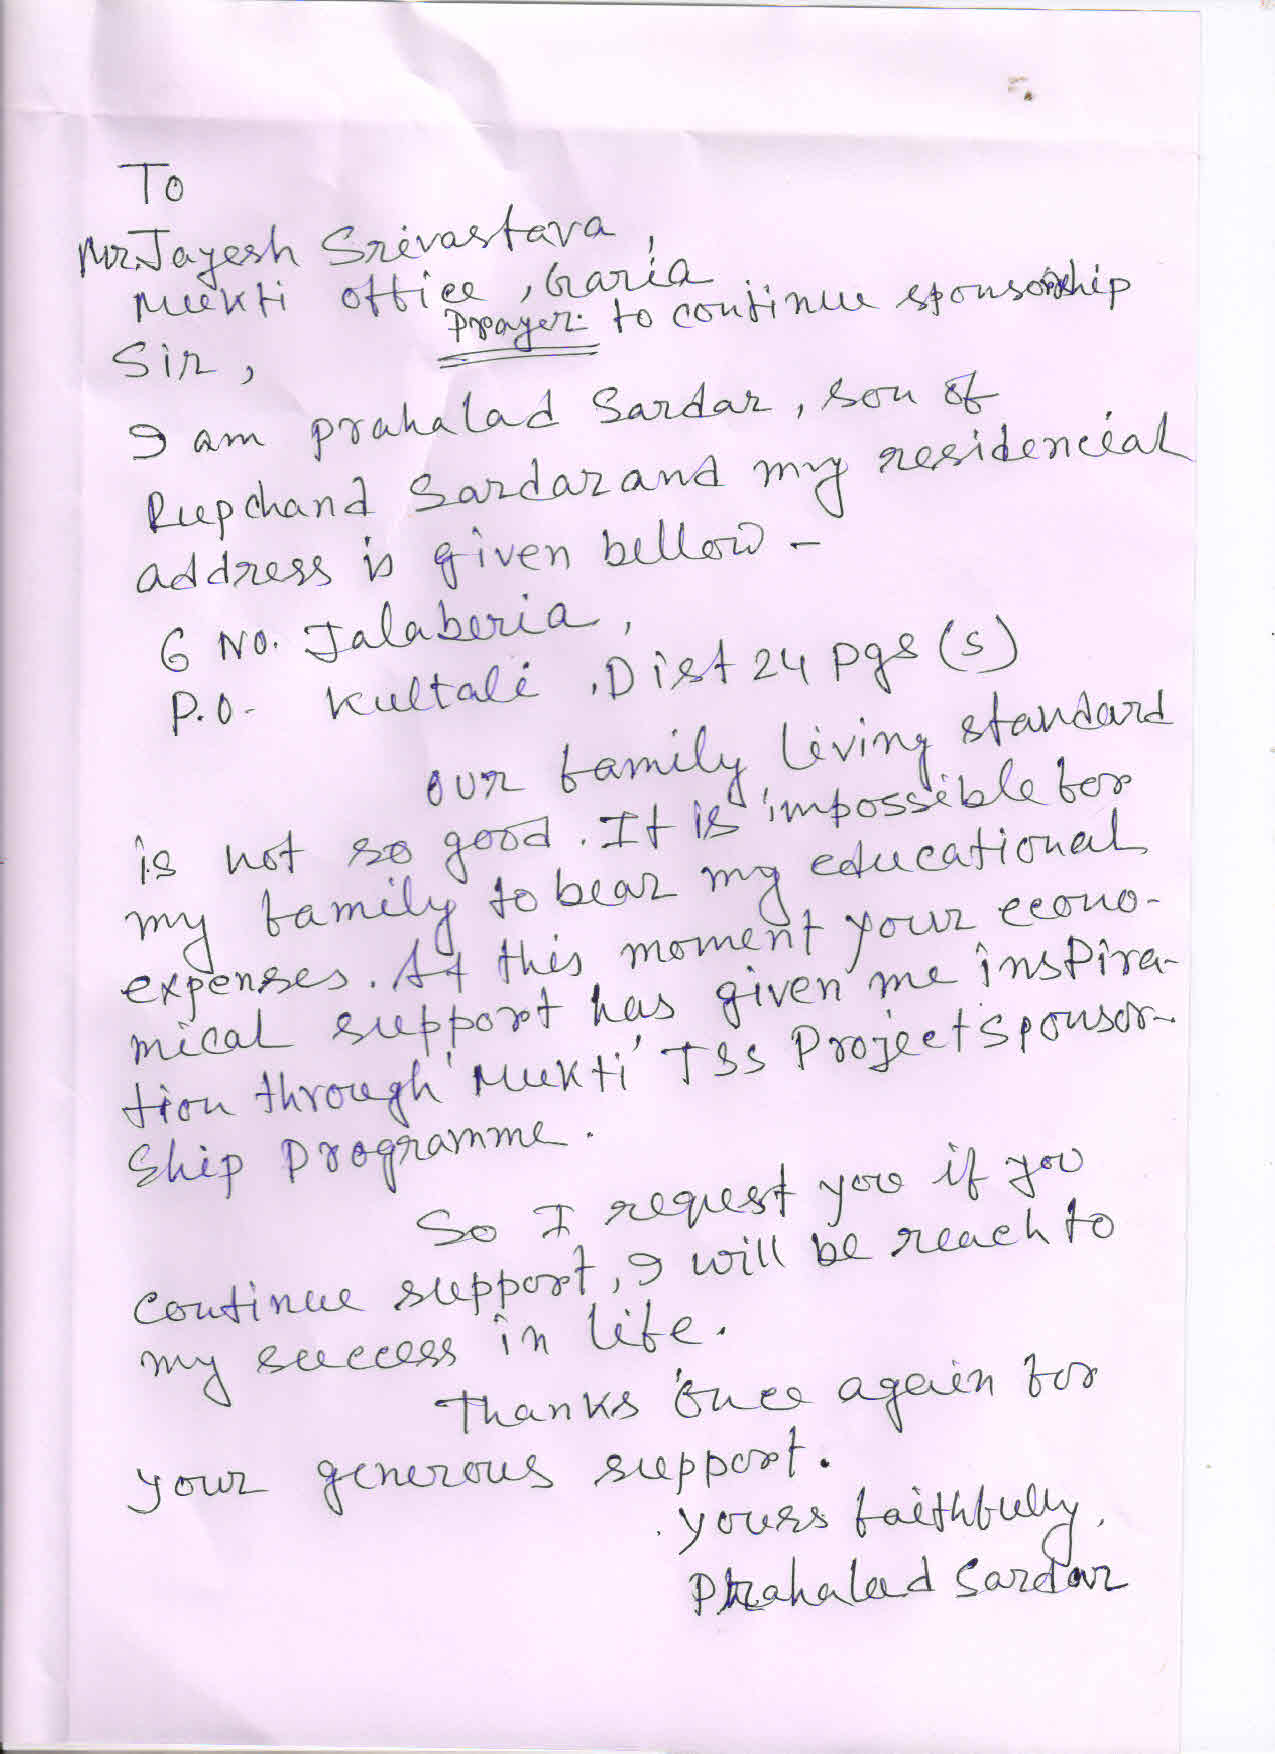 To
Mr. Jayesh Srivastava,
Mukti office, Garia
Prayer: to continue sponsorship
Sir,
I am prahalad Sardar, son of
Rupchand Sardar and my residencial
address is given bellow -
6 No. Jalaberia,
P.O- Kultali, Dist 24 pgs (s)
Our family living standard
is not so good. It is impossible for
my family to bear my educational
expenses. At this moment your econo-
mical support has given me inspira-
tion through 'Mukti' TSS Project sponsor-
ship programme.
So I request you if you
continue support, I will be reach to
my success in life.
Thanks once again for
your generous support.
yours faithfully,
Prahalad Sardar